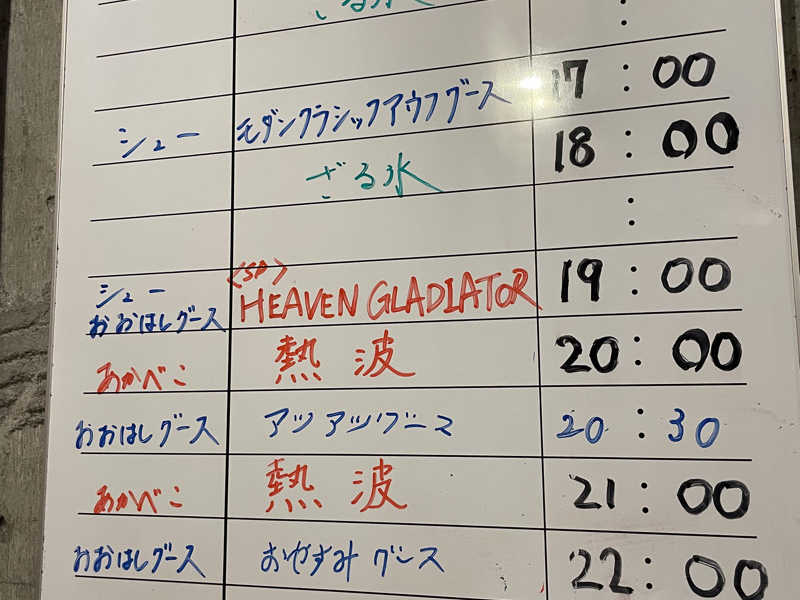 ざる水 :
17:00
シュー モダンクラシックアウフグース 18:00
ざる水
:
<SP>
シュー HEAVEN GLADIATOR 19:00
おおはしグース
あかべこ 熱波 20:00
おおはしグース アツアツグース 20:30
あかべこ 熱波 21:00
おおはしグース おやすみグース 22:00